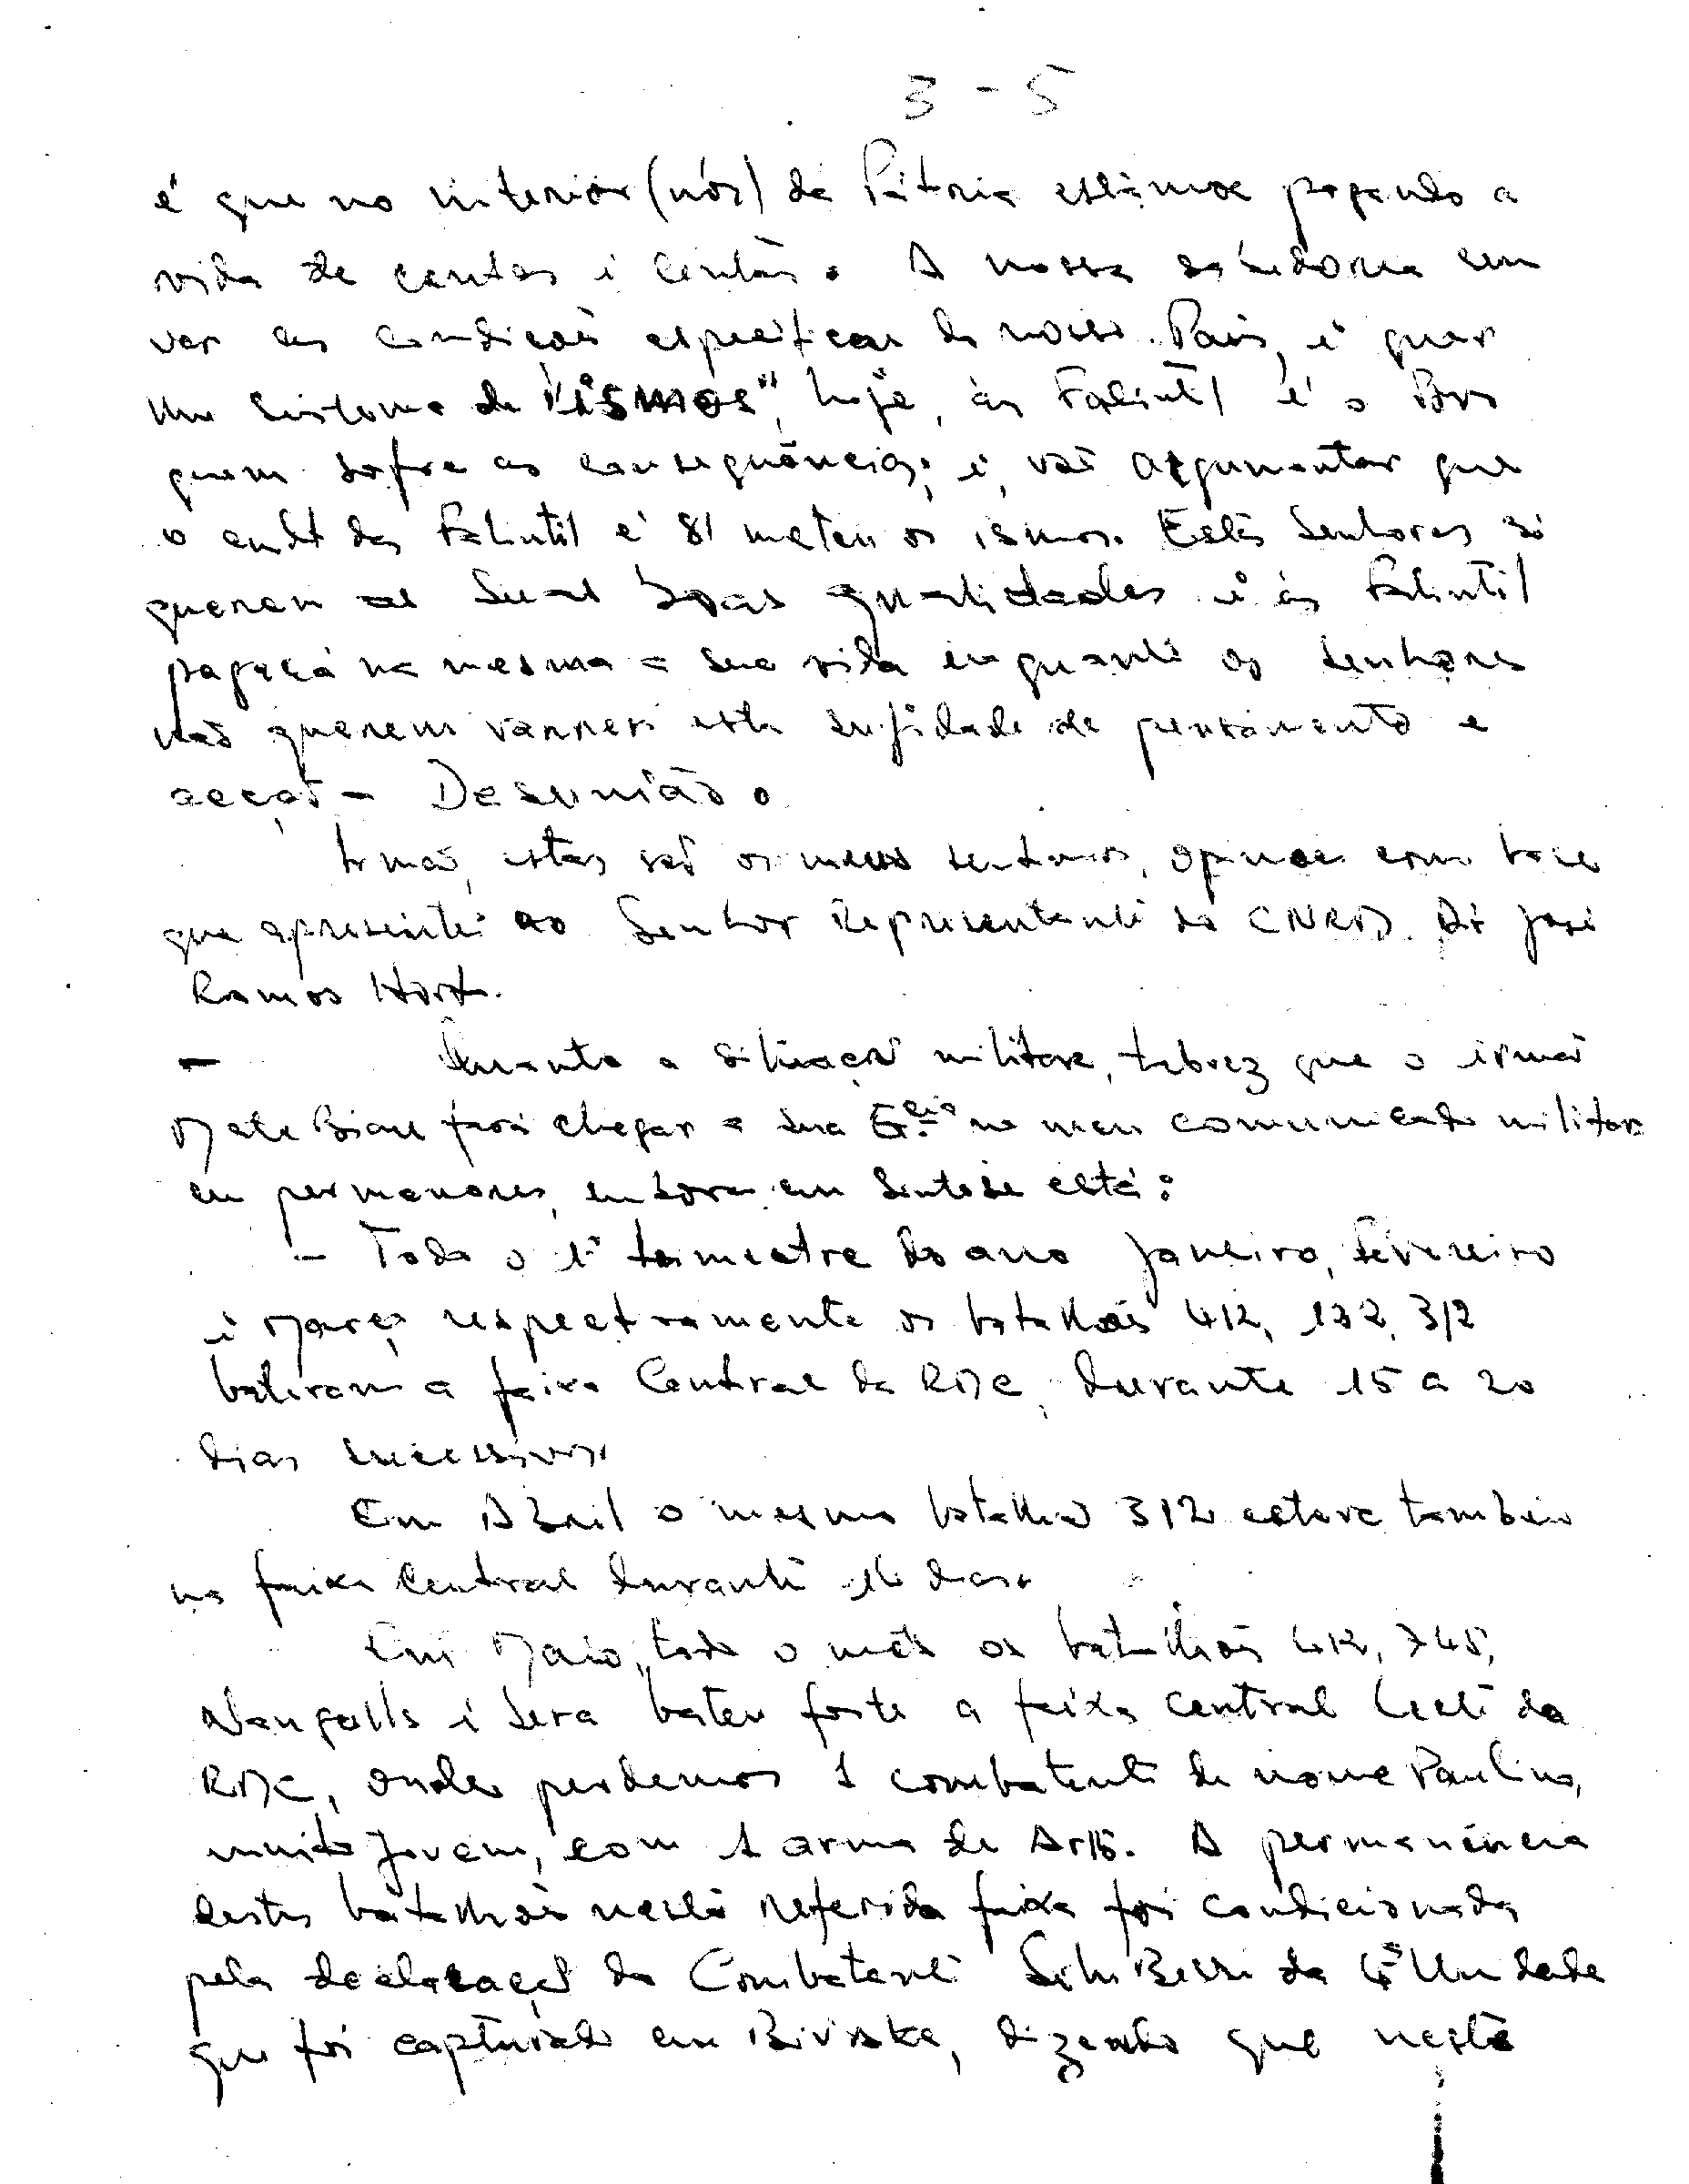 3 - 5
é que no interior (nós) da Pátria estâmos pagando a
vida de centas i centas. A nossa sabedoria sem
ver as condições especificas do nosso Pais, é quer
um sistema de "ismos", hoje, ás Falintil é o Povo
quem sofre as consequências; é, vai argumentar que
o cmdt das Falintil é q' meteu os ismos. Estes Senhores só
querem as suas boas qualidades i ás Falintil
pagará na mesma a sua vida enquanto os senhores
não querem varrer esta sujidade de pensamento e
acção - Desunião.
Irmão, estas são os meus sentimos, opinoes com base
que apresentei ao Senhor Representante do CNRM. Dr José
Ramos Horta.
- Quanto a situação militar, talvez que o irmão
Mate Bian fará chegar a sua Ex.cia no meu comunicado militar
em permenores, embora em sintese está:
- Todo o 1º trimestre do ano Janeiro, Fevereiro
i Março respectivamente os batalhões 412, 132, 312
bateram a faixa Central da RMC, durante 15 a 20
dias sucessivos.
Em Abril o mesmo batalhão 312 esteve também
na faixa Central durante 16 dias.
Em Maio, todo o mês os batalhões 412, 745,
Nangalls i Sera bateu forte a faixa central Leste da
RMC, onde perdemos 1 combatente de nome Paulino,
muito jovem, com 1 arma de Ar15. A permanência
destes batalhões nesta referida faixa foi condicionada
pela declaração do Combatente da 4ª Unidade
que foi capturado em Bivake, dizendo que nesta